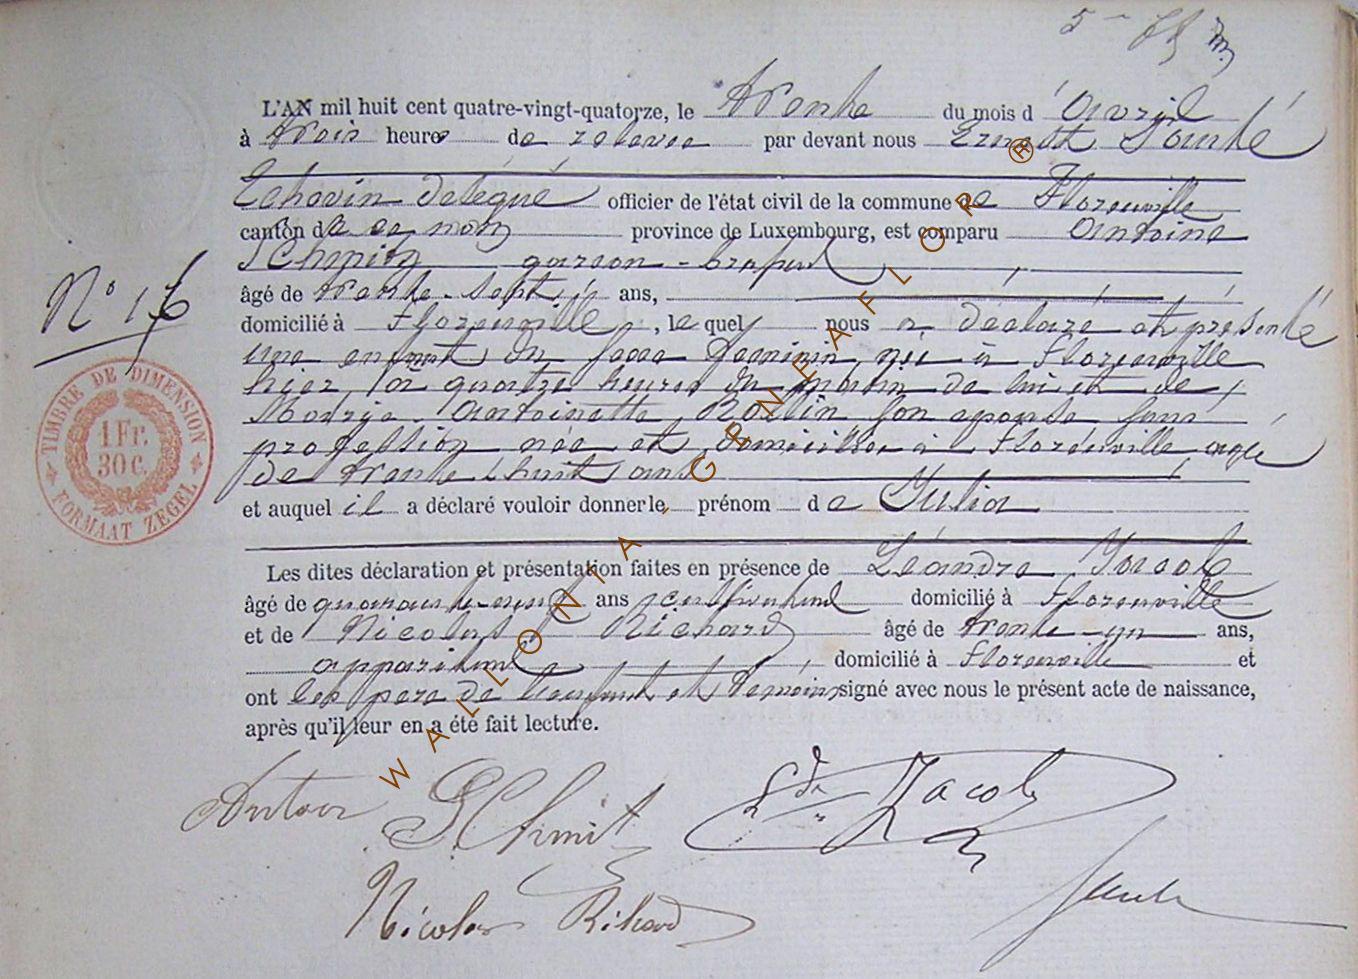 L'AN mil huit cent quatre-vingt-quatorze, le trente du mois d'avril
à trois heures de relevée par devant nous Ernest
Echevin délégué officier de l'état civil de la commune de Florenville
canton de ce nom province de Luxembourg, est comparu Antoine
Schmit, garçon-brasseur
âgé de trente-sept ans,
domicilié à Florenville, lequel nous a déclaré et présenté
une enfant du sexe féminin, née à Florenville
hier, à quatre heures du matin de lui et de
Antoinette Rollin son épouse sans
profession née et domiciliée à Florenville âgée
de trente huit ans
et auquel il a déclaré vouloir donner le prénom de Julia
Les dites déclaration et présentation faites en présence de Léandre Jacob
âgé de quarante-neuf ans cultivateur domicilié à Florenville
et de Nicolas Richard âgé de trente-un ans,
appariteur domicilié à Florenville et
ont les père de l'enfant et témoins signé avec nous le présent acte de naissance,
après qu'il leur en a été fait lecture.
N° 16
TIMBRE DE DIMENSION
1 Fr.
30 C.
FORMAAT ZEGEL
WALLONIA GENEAFLOR ®
Antoin Schmit
Jacob
Nicolas Rihard